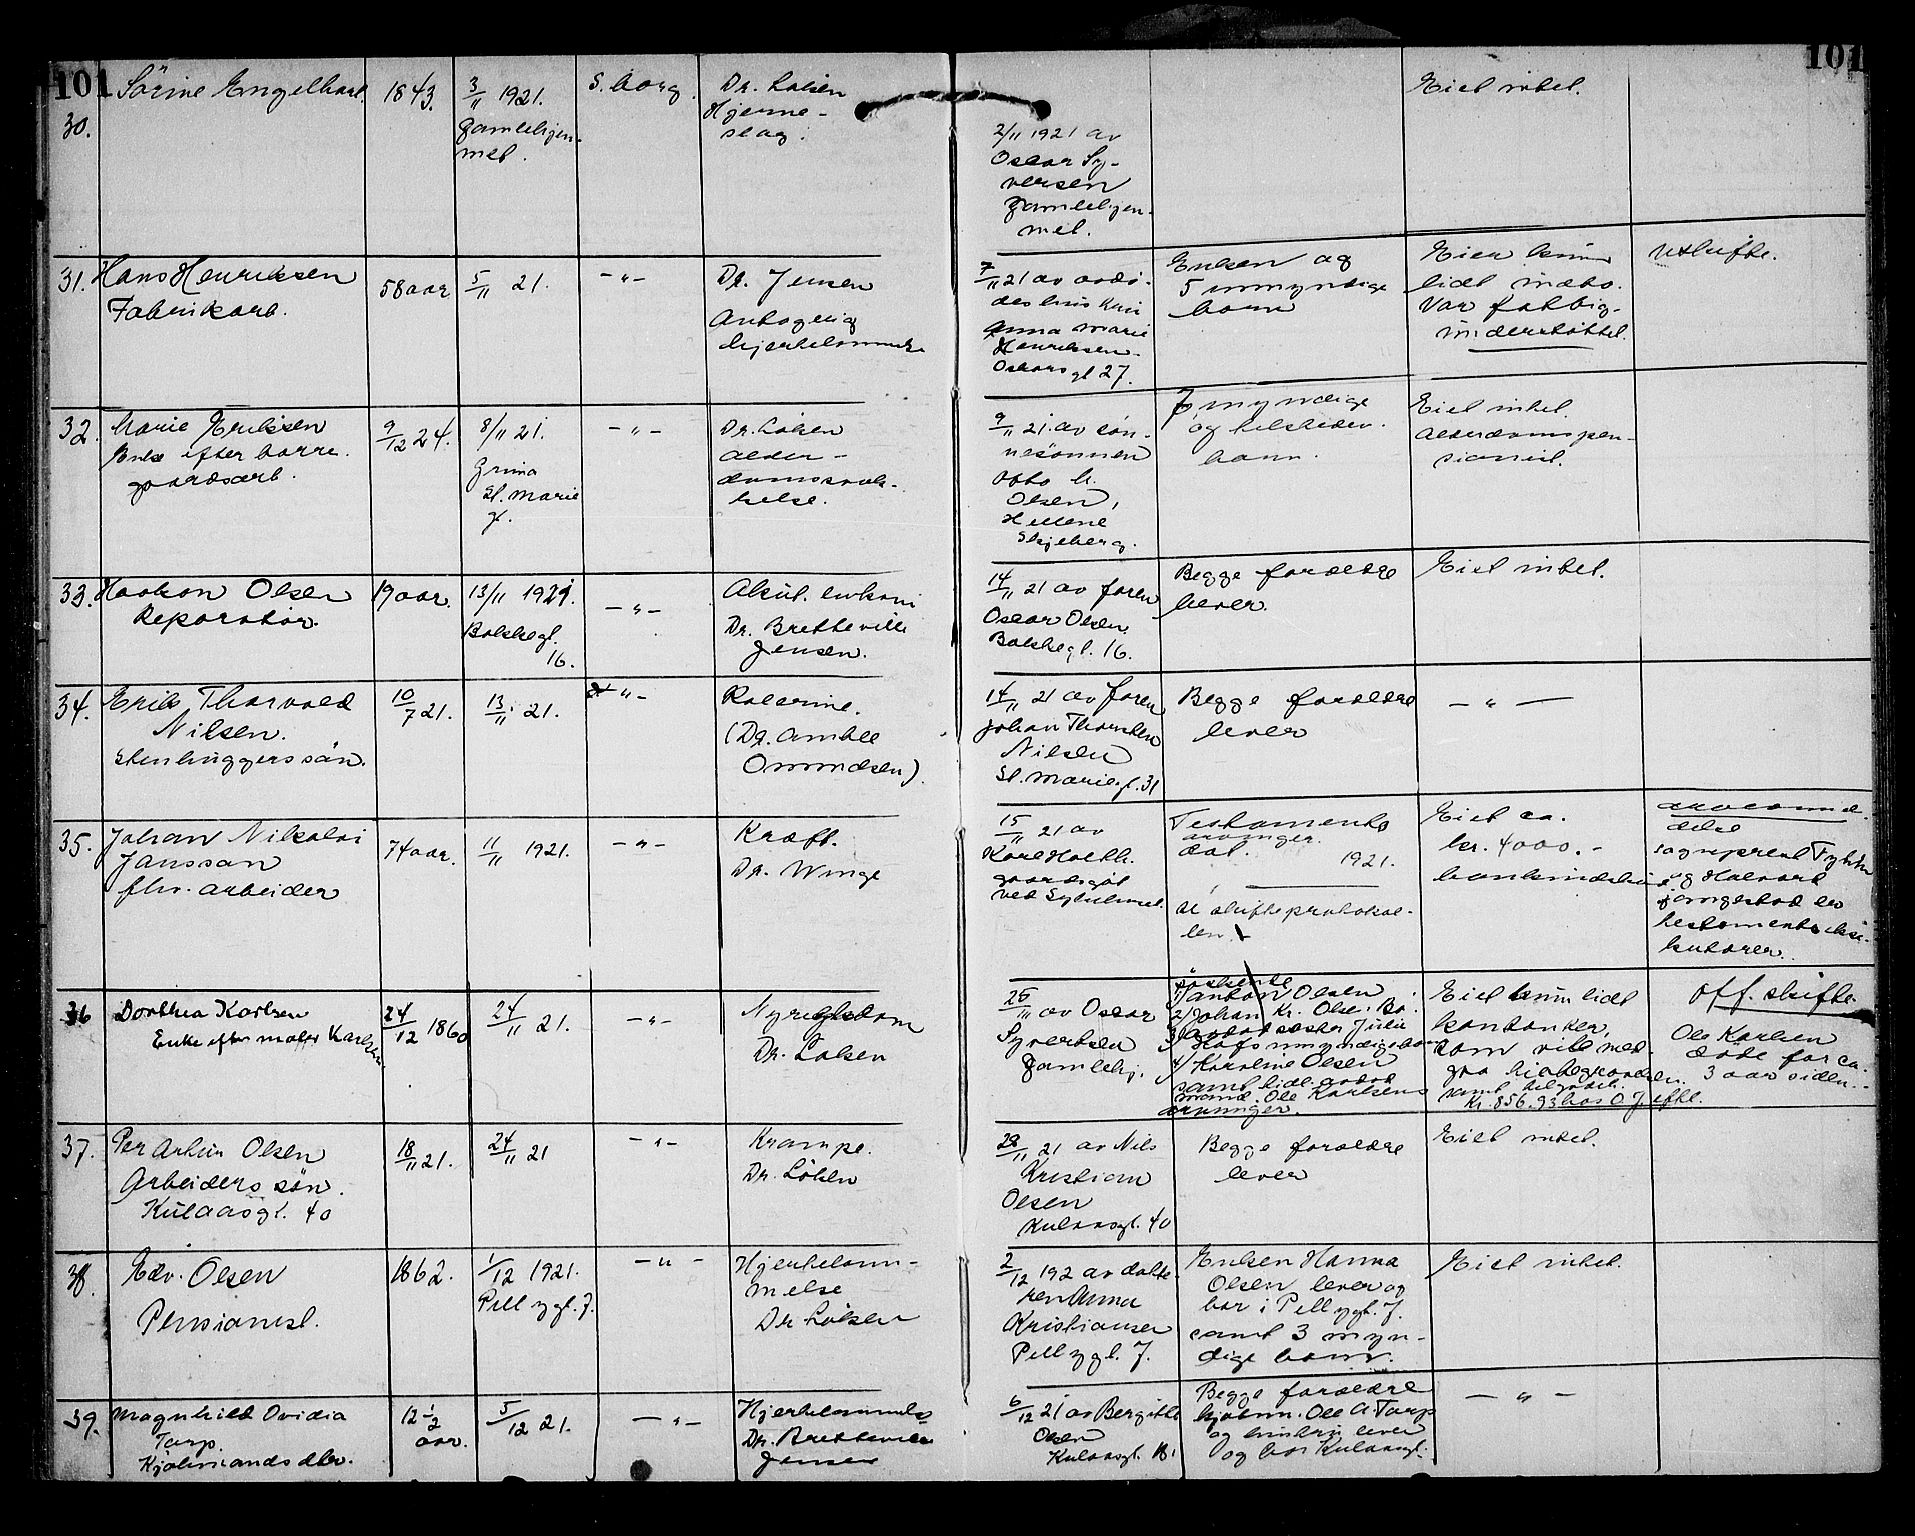 101
101
30.
Sörine Engelhart.
1843.
3/11 1921.
Gamlehjem-
met.
S.borg.
Dr. Løken
Hjerne-
slag.
2/11 1921 av
Oscar Sy-
versen
Gamlehjem-
met.
Eiet intet.
31.
Hans Henriksen
Fabrikarb.
58 aar
5/11 21.
-"-
Dr. Jensen
Antagelig
hjertelammelse
7/11 21 av avdö-
des hustru
Anna Marie
Henriksen
Oskarsgt 27.
Enken og
5 umyndige
barn
Eier kun
lidt indbo.
Var fattig-
understøttet.
Utskifte.
32.
Marie Eriksen
Enke efter
gaardsarb.
9/12 24.
8/11 21.
Grina
St. Marie
g.
-"-
Dr. Løken
Alder-
domssvak-
helse.
9/11 21. av søn-
nesönnen
Otto
Olsen,
Skjeberg.
7 myndige
og
barn.
Eiet intet.
Alderdomspen-
sionist.
33.
Haakon Olsen
Reparatör.
19 aar.
13/11 1921.
Balskegt.
16.
-"-
Akut.
Dr. Bretteville
Jensen.
14/11 21 av faren
Oscar Olsen.
Balskegt. 16.
Begge forældre
lever.
Eiet intet.
34.
Erik Thorvald
Nilsen.
Stenhuggerssön.
10/7 21.
13/11 21.
-"-
Kolerine.
(Dr. Amble
Ommdsen).
14/11 21 av faren
Johan Thorsten
Nilsen
St. Mariegt. 31
Begge forældre
lever
- " -
35.
Johan Nikolai
Janssan
fhv. arbeider
74 aar.
11/11 1921.
-"-
Kræft.
Dr. Winge
15/11 21 av
Karl Holth.
gaardsgut
ved
Testaments
arvinger.
dat. 1921.
skifteprotokol-
len.
Eiet ca.
kr. 4000.-
bankindskud
sogneprest
og Halvard
er
testamentseksi-
kutorer.
36
Dorthea Karlsen
Enke efter maler Karlsen
24/12 1860
24/11 21.
-"-
Nyresykdom
Dr. Løken
25/11 av Oscar
Syvertsen
Gamlehj.
Søskende
1/ Anton Olsen
2/ Johan Kr. Olsen
3/ avdød søster Julie
umyndige barn
4/ Karoline Olsen
samt tidl. avdød
mand Ole Karlsens
arvinger.
Eiet kun lidt
kontanter,
som vil med-
gaa til begravelsen.
samt
Kr. 856.93 hos O.J. eftl.
Off. skifte
Ole Karlsen
døde for ca.
3 aar siden.
37.
Per Artur Olsen
Arbeiders sön.
Kulaasgt. 40
18/11 21.
24/11 21
-"-
Krampe.
Dr. Løken
28/11 21 av Nils
Kristian
Olsen
Kulaasgt. 40
Begge forældre
lever
Eiet intet.
38.
Edv. Olsen
Pensionist.
1862.
1/12 1921.
Pellygt. 7.
-"-
Hjertelam-
melse
Dr Løken
2/12 192 av datte-
ren Anna
Kristiansen
Pellygt. 7.
Enken Hanna
Olsen lever og
bor i Pellygt. 7.
samt 3 myn-
dige barn.
Eiet intet.
39.
Magnhild Ovidia
Tarp.
Kjøbmandsdtr.
12 1/2
aar.
5/12 21.
-"-
Hjertelammelse
Dr. Bretteville
Jensen
6/12 21 av Bergitte
Olsen
Kulaasgt. 18.
Begge forældre
kjøbm. Ole A. Tarp
og hustru lever
og bor Kulaasgt.
- " -